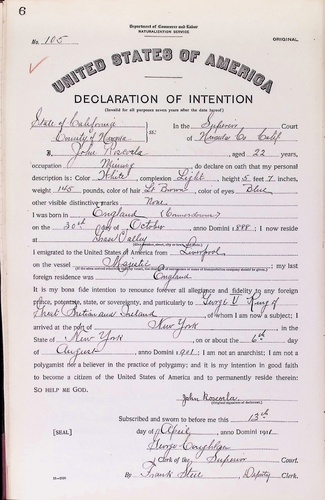 6
Department of Commerce and Labor
NATURALIZATION SERVICE
No. 105
ORIGINAL
UNITED STATES OF AMERICA
DECLARATION OF INTENTION
(Invalid for all purposes seven years after the date hereof)
State of California
In the Superior Court
County of Nevada
ss:
of Nevada Co Calif
I, John Roscorla, aged 22 years,
occupation Mining, do declare on oath that my personal
description is: Color White, complexion Light, height 5 feet 7 inches,
weight 145 pounds, color of hair Lt Brown, color of eyes Blue
other visible distinctive marks None
I was born in England
on the 30th day of October, anno Domini 1888; I now reside
at Grass Valley
I emigrated to the United States of America from Liverpool
on the vessel; my last
foreign residence was England
It is my bona fide intention to renounce forever all allegiance and fidelity to any foreign
prince, potentate, state, or sovereignty, and particularly to George V King of
Great Britain and Ireland, of whom I am now a subject; I
arrived at the port of New York, in the
State of New York, on or about the 6th day
of August, anno Domini 1901; I am not an anarchist; I am not a
polygamist nor a believer in the practice of polygamy; and it is my intention in good faith
to become a citizen of the United States of America and to permanently reside therein:
SO HELP ME GOD.
John Roscorla
(Original signature of declarant.)
Subscribed and sworn to before me this 13th
[SEAL]
day of April, anno Domini 1911
George
Clerk of the Superior Court.
By Frank Steel Deputy Clerk.